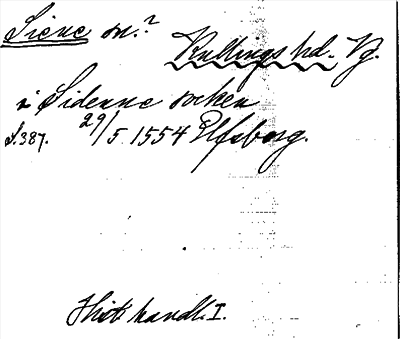 Siene sn.?
Kullings hd. Vg.
i Sidenne socken
S.387. 29/5 1554 Elfsborg.
Hist. handl. I.